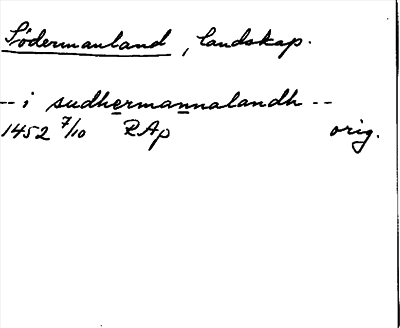 Södermanland, landskap.
-- i sudhermannalandh --
1452 7/10 RAp orig.